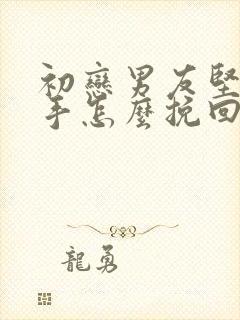 初戀男友堅
手怎麼挽回
龍勇